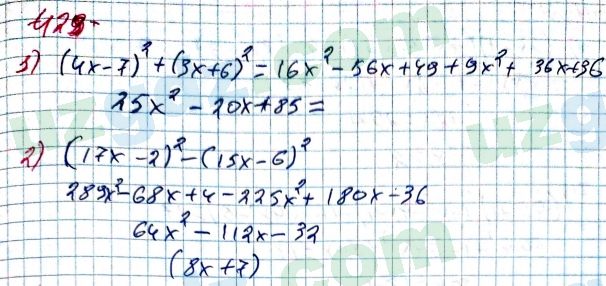 429
1) (4x-7)² + (3x+6)² = 16x² - 56x + 49 + 9x² + 36x+36
25x² - 20x+85 =
2) (17x - 2)² - (15x - 6)²
289x² - 68x + 4 - 225x² + 180x - 36
64x² - 112x - 32
(8x + 7)